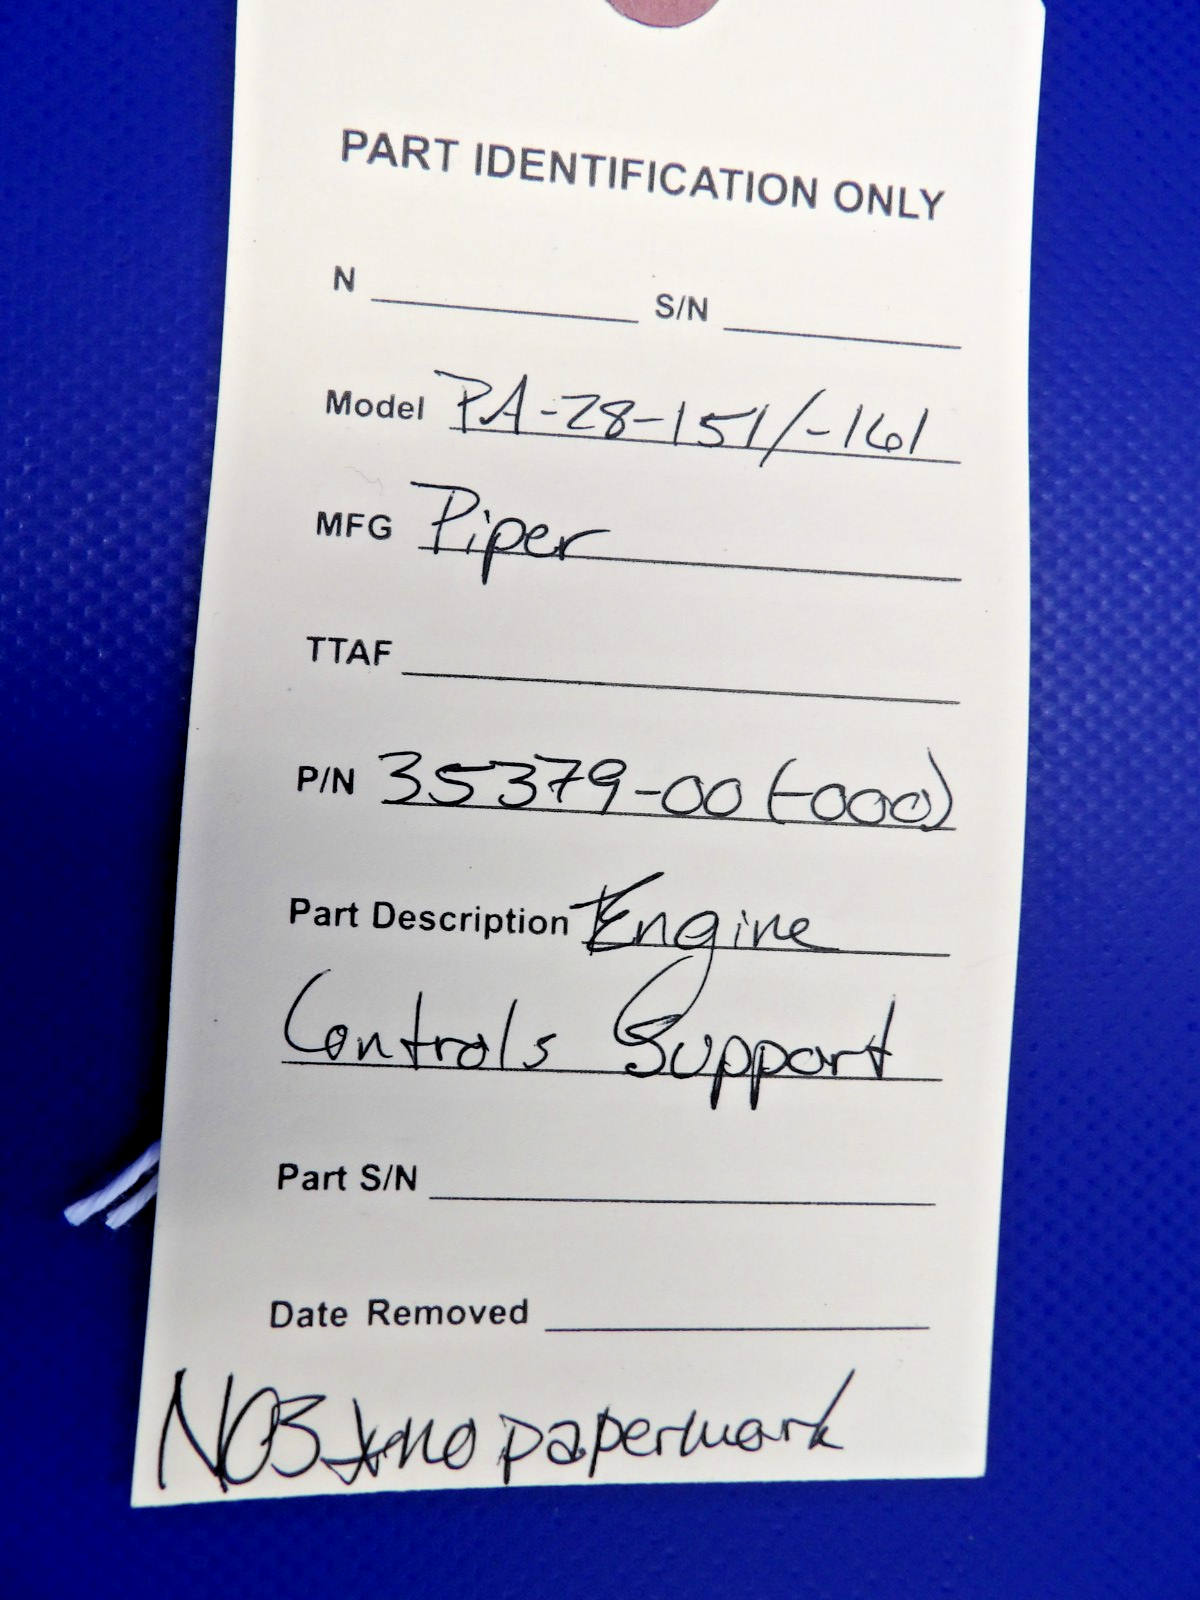 PART IDENTIFICATION ONLY
N S/N
Model PA-28-151/-161
MFG Piper
TTAF
P/N 35379-00 (-000)
Part Description Engine
Controls Support
Part S/N
Date Removed
NOS no paperwork